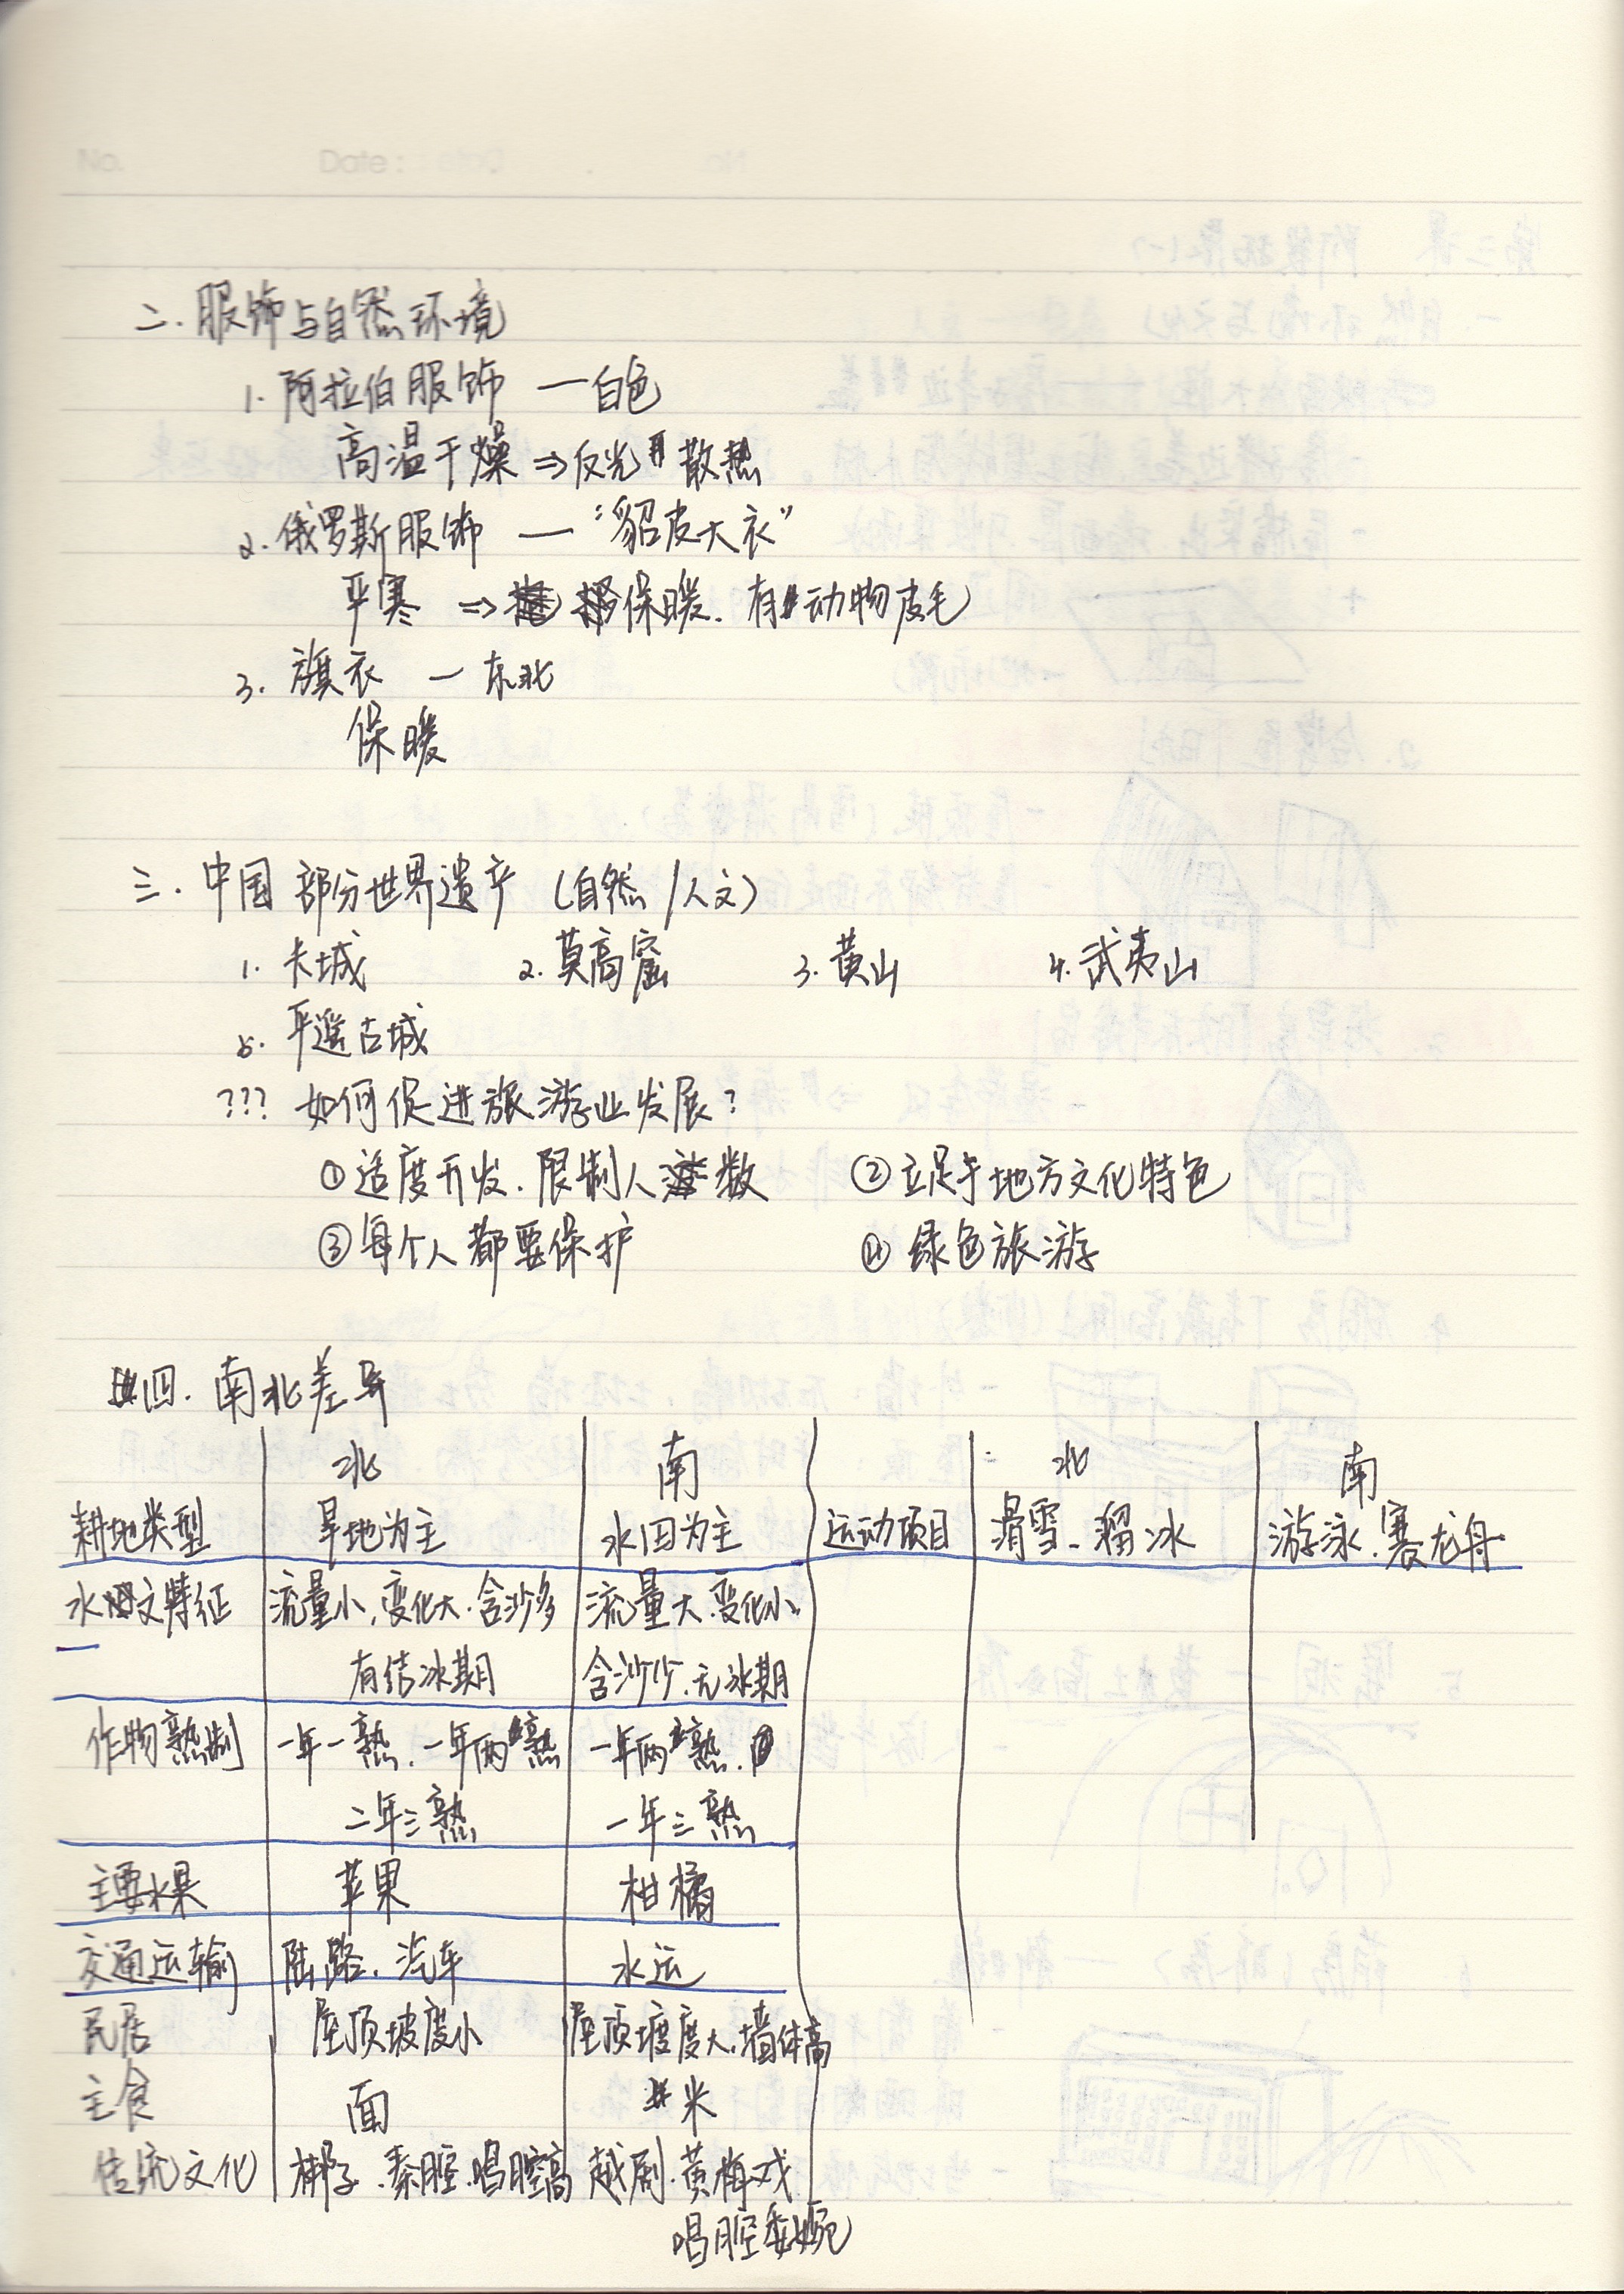 No.    Date :
二. 服饰与自然环境
1. 阿拉伯服饰 — 白色
高温干燥 ⇒ 反光 散热
2. 俄罗斯服饰 — “貂皮大衣”
平寒 ⇒ 保暖. 有 动物皮毛
3. 旗衣 — 东北
保暖
三. 中国 部分世界遗产 (自然/人文)
1. 长城 2. 莫高窟 3. 黄山 4. 武夷山
5. 平遥古城
??? 如何促进旅游业发展?
①适度开发. 限制人数 ②立足于地方文化特色
③每个人都要保护 ④ 绿色旅游
四. 南北差异
北 南 北 南
耕地类型 旱地为主 水田为主 运动项目 滑雪、溜冰 游泳.赛龙舟
水文特征 流量小,变化大.含沙多 流量大.变化小
有结冰期 含沙少.无冰期
作物熟制 一年一熟.一年两熟 一年两熟.
二年三熟 一年三熟
主要水果 苹果 柑橘
交通运输 陆路、汽车 水运
民居 屋顶坡度小 屋顶坡度大.墙体高
主食 面 米
传统文化 梆子.秦腔.唱腔高 越剧.黄梅戏
唱腔委婉